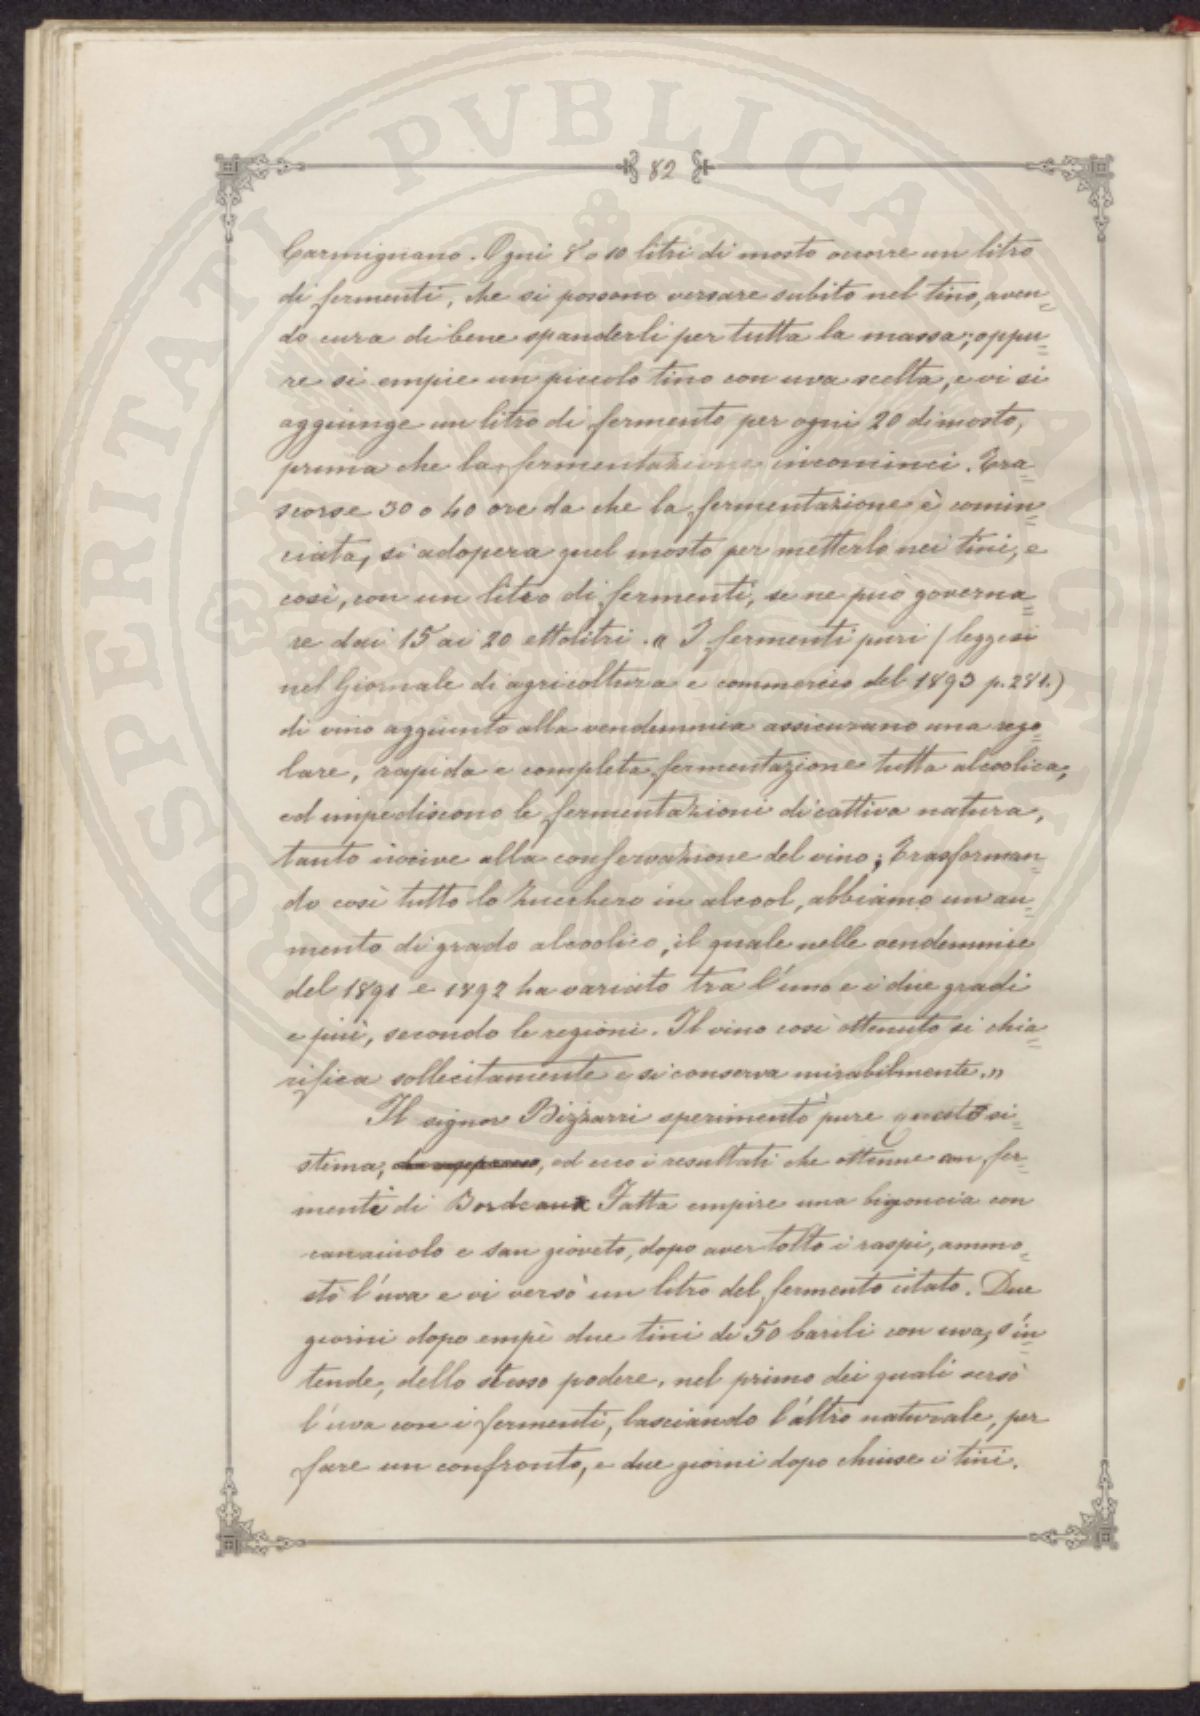 82
Carmignano. Ogni 8 o 10 litri di mosto occorre un litro
di fermenti, che si possono versare subito nel tino, aven=
do cura di bene spanderli per tutta la massa; oppu=
re si empie un piccolo tino con uva scelta, e vi si
aggiunge un litro di fermento per ogni 20 di mosto,
prima che la fermentazione incominci. Tra=
scorse 30 o 40 ore da che la fermentazione è comin=
ciata, si adopera quel mosto per metterlo nei tini, e
così, con un litro di fermenti, se ne può governa=
re dai 15 ai 20 ettolitri. « I fermenti puri (leggesi
nel Giornale di agricoltura e commercio del 1893 p. 281.)
di vino aggiunto alla vendemmia assicurano una rego=
lare, rapida e completa fermentazione tutta alcoolica,
ed impediscono le fermentazioni di cattiva natura,
tanto nocive alla conservazione del vino; Trasforman=
do così tutto lo zucchero in alcool, abbiamo un au=
mento di grado alcoolico, il quale nelle vendemmie
del 1891 e 1892 ha variato tra l'uno e i due gradi
e più, secondo le regioni. Il vino così ottenuto si chia=
rifica sollecitamente e si conserva mirabilmente. »
Il signor Bizzarri sperimentò pure questo si=
stema, ed ecco i resultati che ottenne con fer=
menti di Bordeaux Fatta empire una bigoncia con
canaiuolo e san gioveto, dopo aver tolto i raspi, ammo=
stò l'uva e vi versò un litro del fermento citato. Due
giorni dopo empì due tini di 50 barili con uva, s'in=
tende, dello stesso podere, nel primo dei quali versò
l'uva con i fermenti, lasciando l'altro naturale, per
fare un confronto, e due giorni dopo chiuse i tini.
SOSPERITATI PVBLICAE AVGENDAE